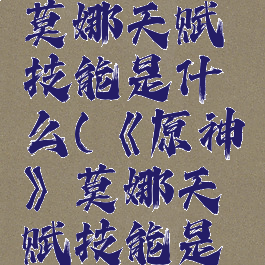 莫娜天赋
技能是什
么(《原神
》莫娜天
赋技能是